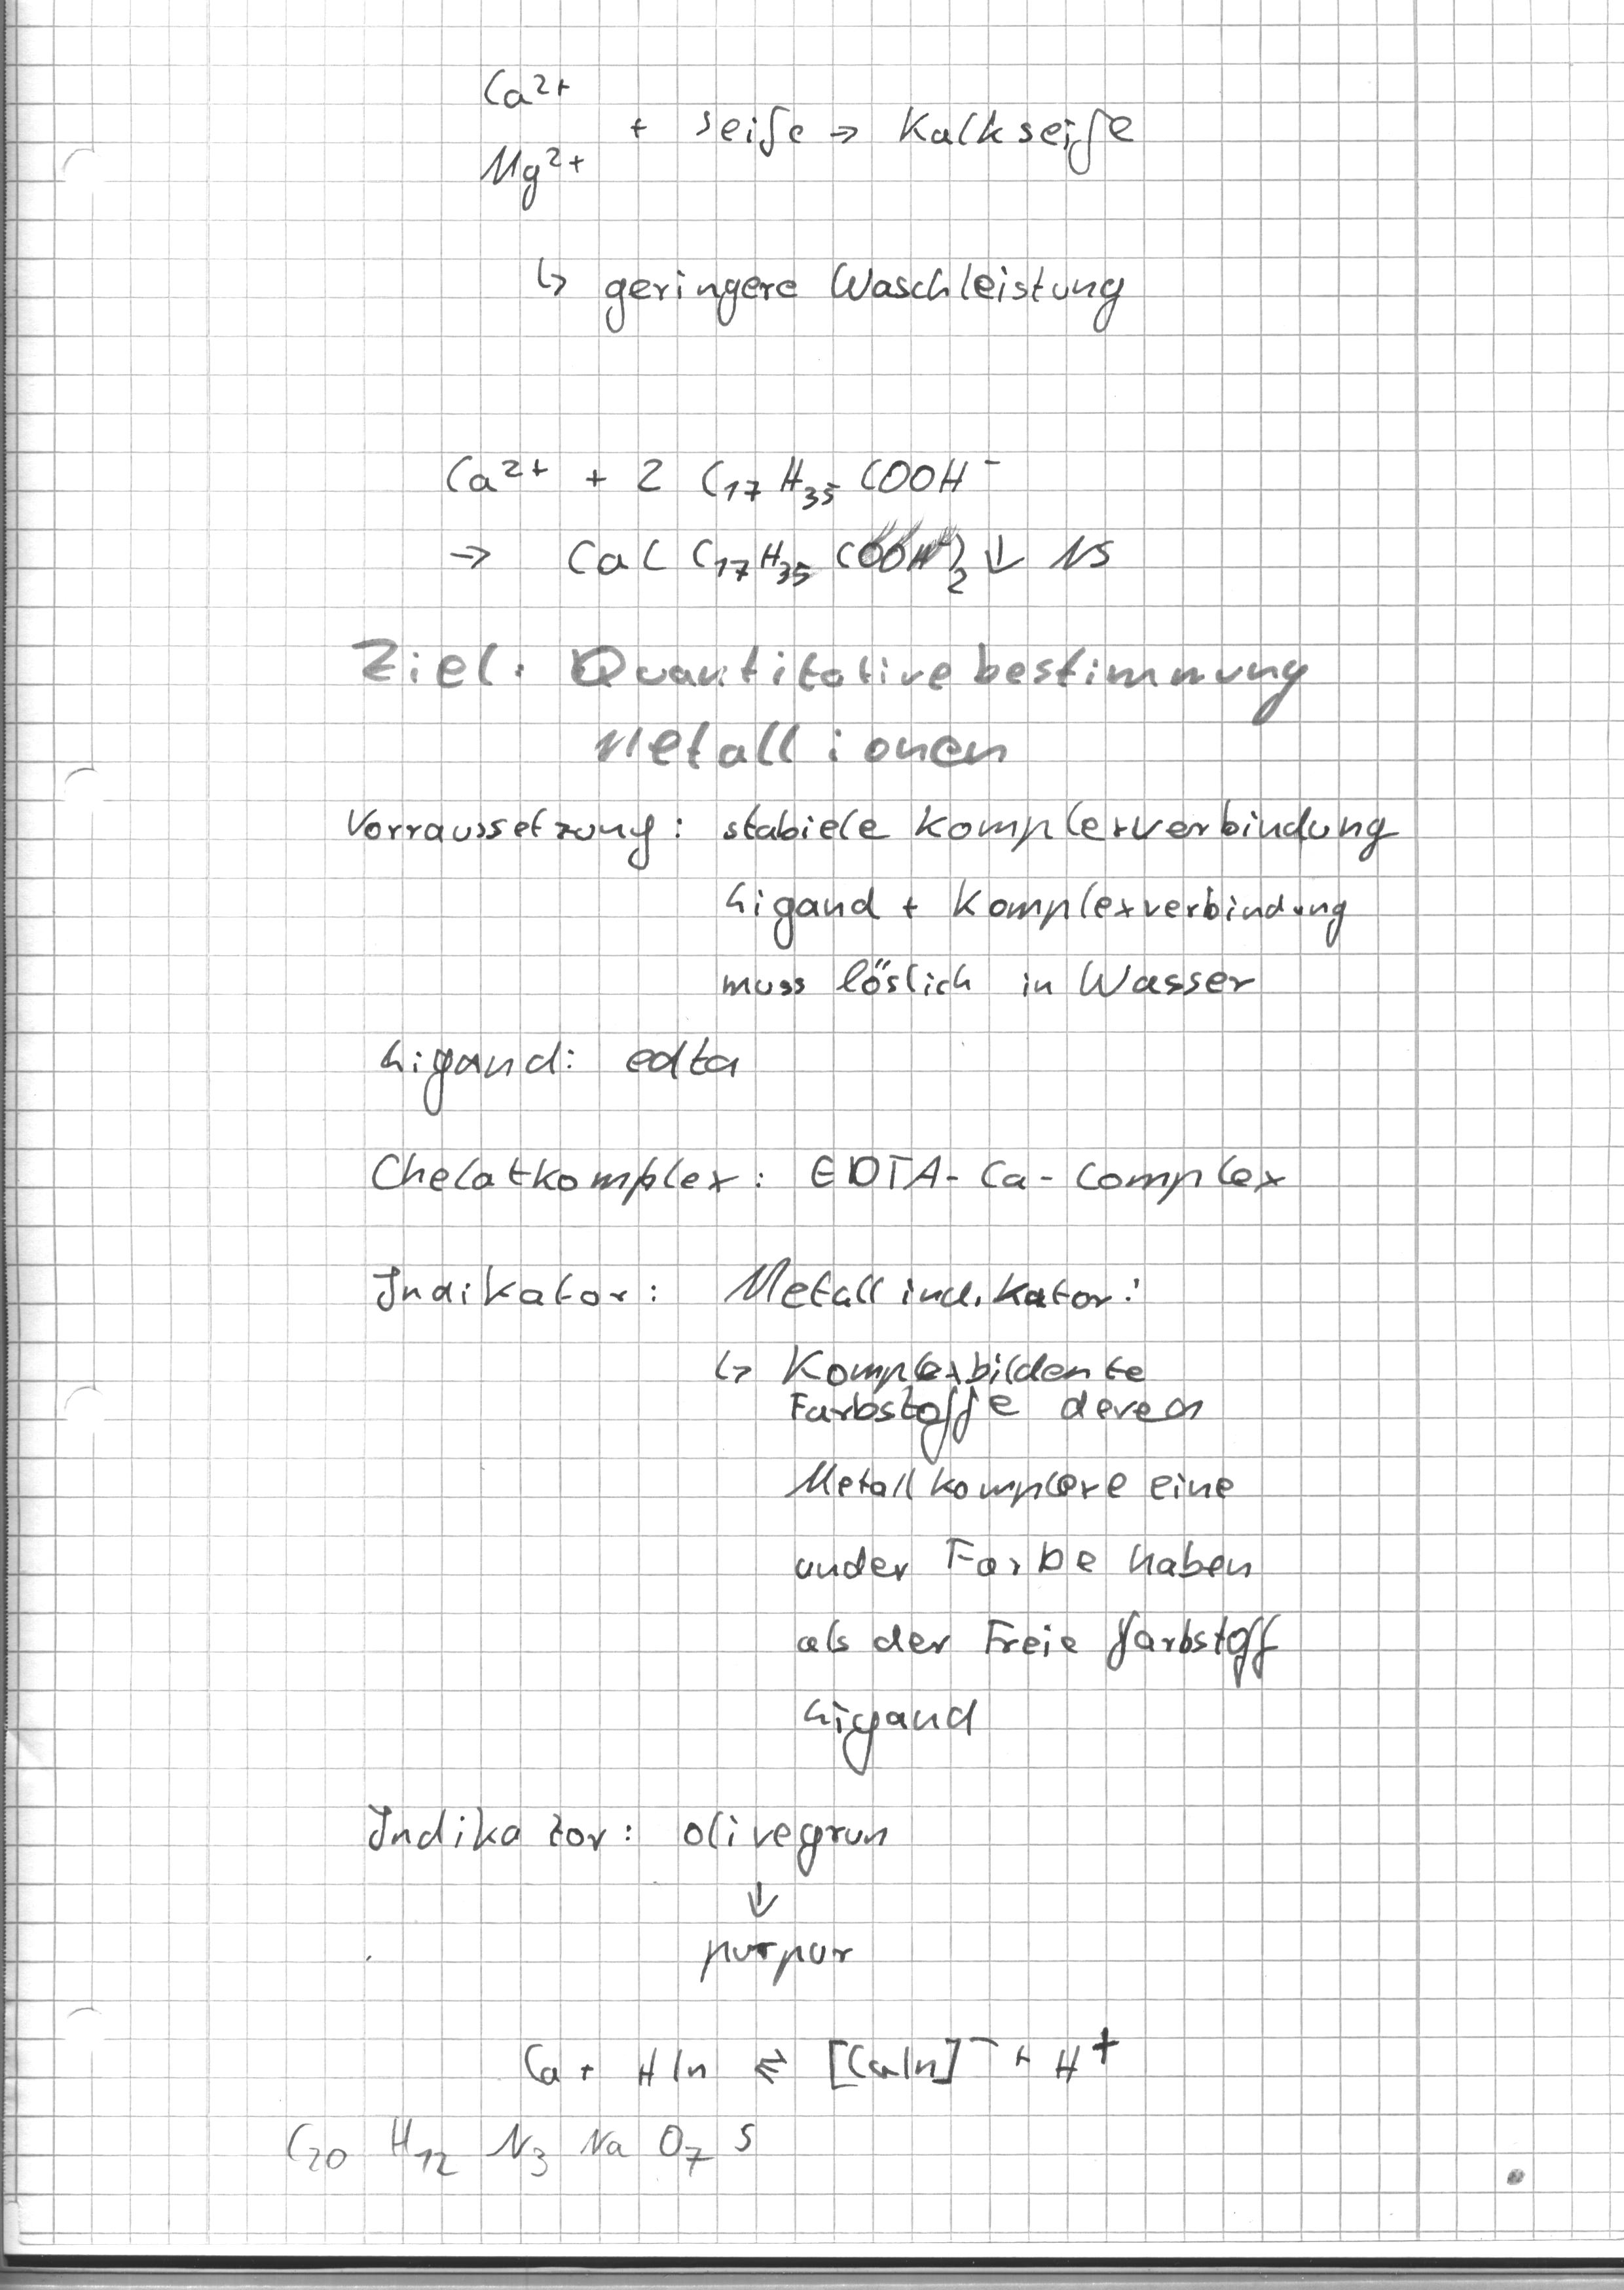 Ca²⁺
+ seife → Kalkseife
Mg²⁺
↳ geringere Waschleistung
Ca²⁺ + 2 C₁₇H₃₅COOH⁻
→ Ca( C₁₇H₃₅COOH⁻)₂ ↓ NS
Ziel: Quantitative bestimmung
Metallionen
Vorraussetzung: stabiele Komplexverbindung
Ligand + Komplexverbindung
muss löslich in Wasser
Ligand: edta
Chelatkomplex: EDTA-Ca-Complex
Indikator: Metallindikator:
↳ Komplexbildente
Farbstoffe deren
Metallkomplexe eine
ander Farbe haben
als der Freie farbstoff
Ligand
Indikator: olivegrun
↓
purpur
Ca + HIn ⇌ [CaIn]⁻ + H⁺
C₂₀ H₁₂ N₃ Na O₇ S